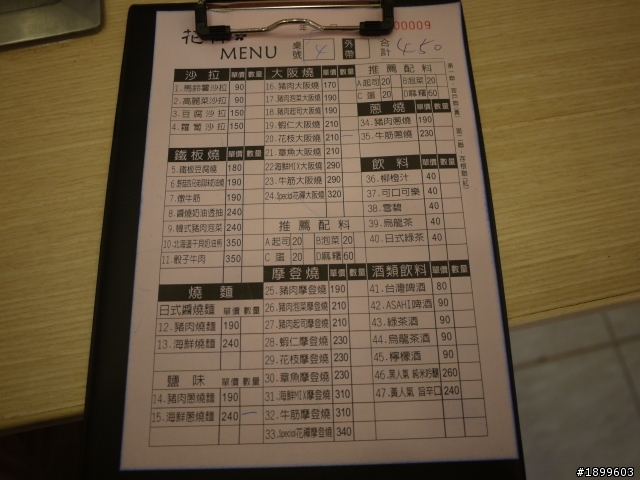 00009
MENU 桌號 4 外帶 合計 450
沙拉 單價 數量
1.馬鈴薯沙拉 90
2.高麗菜沙拉 90
3.豆腐沙拉 150
4.蘿蔔沙拉 150
鐵板燒 單價 數量
5.鐵板豆腐燒 180
190
7.燉牛筋 190
8.醬燒奶油透抽 240
9.韓式豬肉泡菜 240
10.北海道干貝奶油燒 350
11.骰子牛肉 350
燒麵
日式醬燒麵 單價 數量
12.豬肉燒麵 190
13.海鮮燒麵 240
鹽味 單價 數量
14.豬肉蔥燒麵 190
15.海鮮蔥燒麵 240
大阪燒 單價 數量
16.豬肉大阪燒 170
17.豬肉泡菜大阪燒 190
18.豬肉起司大阪燒 190
19.蝦仁大阪燒 210
20.花枝大阪燒 210
21.章魚大阪燒 210
22.海鮮MIX大阪燒 290
23.牛筋大阪燒 290
24.Special花樣大阪燒 320
推薦配料
A起司 20 B泡菜 20
C蛋 20 D麻糬 60
摩登燒 單價 數量
25.豬肉摩登燒 190
26.豬肉泡菜摩登燒 210
27.豬肉起司摩登燒 210
28.蝦仁摩登燒 230
29.花枝摩登燒 230
30.章魚摩登燒 230
31.海鮮MIX摩登燒 310
32.牛筋摩登燒 310
33.Special花樣摩登燒 340
推薦配料
A起司 20 B泡菜 20
C蛋 20 D麻糬 60
蔥燒 單價 數量
34.豬肉蔥燒 190
35.牛筋蔥燒 230
飲料 單價 數量
36.柳橙汁 40
37.可口可樂 40
38.雪碧 40
39.烏龍茶 40
40.日式綠茶 40
酒類飲料 單價 數量
41.台灣啤酒 80
42.ASAHI啤酒 90
43.綠茶酒 90
44.烏龍茶酒 90
45.檸檬酒 90
46.美人氣 純米吟釀 260
47.美人氣 旨辛口 240
#1899603